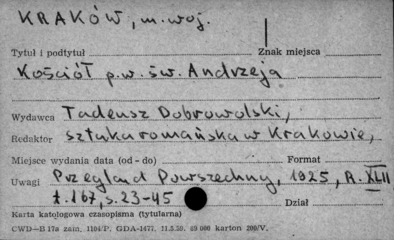 KRAKÓW, m. woj.
Tytuł i podtytuł Znak miejsca
Kościół p.w. św. Andrzeja
Wydawca Tadeusz Dobrowolski,
Redaktor sztuka romańska w Krakowie,
Miejsce wydania data (od - do) Format
Uwagi Przegląd Powszechny, 1925, R. XLII
t. 167, s. 23-45 Dział
Karta katalogowa czasopisma (tytularna)
CWD—B 17a zam. 1104/P. GDA-1477. 11.5.59. 49 000 karton 200/V.